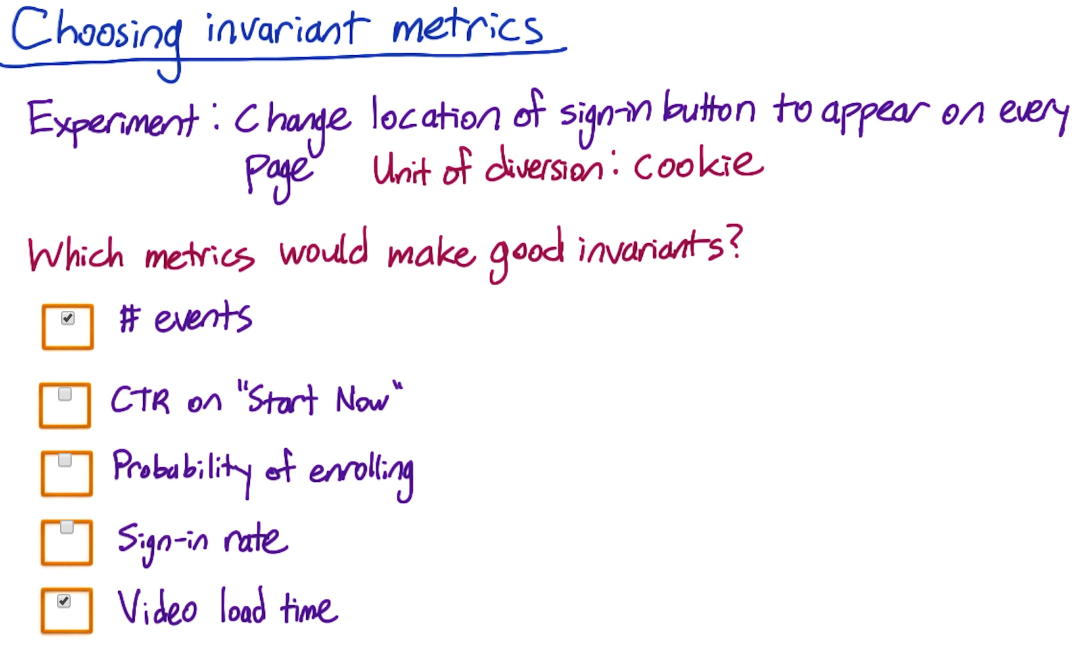 Choosing invariant metrics
Experiment: Change location of sign-in button to appear on every
page Unit of diversion: cookie
Which metrics would make good invariants?
# events
CTR on "Start Now"
Probability of enrolling
Sign-in rate
Video load time